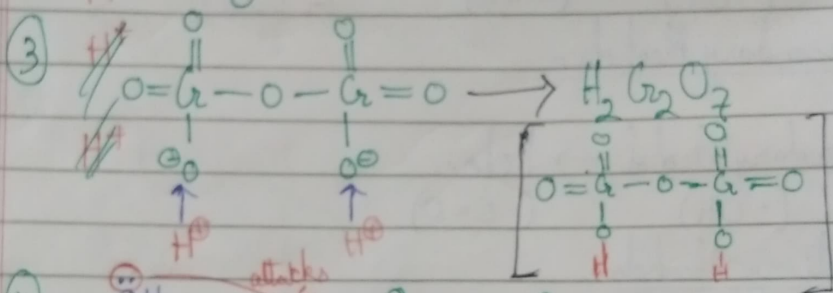 ③ H⁺ O O
O=Cr—O—Cr=O ⟶ H₂Cr₂O₇
H⁺ ⊖O O⊖
O O
O=Cr—O—Cr=O
O O
H⊕ H⊕ H H
attacks